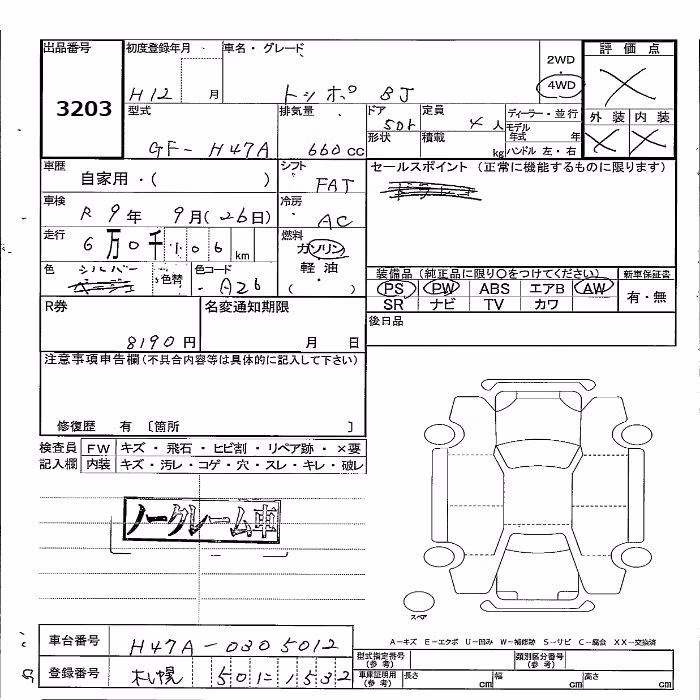 出品番号
3203
初度登録年月
H12 月
車名・グレード
トッポ BJ
2WD
・
4WD
評価点
外装 内装
型式
GF-H47A
排気量
660cc
ドア
5Dr
形状
定員
4人
積載
kg
ディーラー・並行
モデル
年式 年
ハンドル 左・右
車歴
自家用・( )
シフト
FAT
セールスポイント (正常に機能するものに限ります)
車検
R 9年 9月(26日)
冷房
AC
走行
6万0千106km
燃料
ガソリン
軽油
( )
色
シルバー
色替
色コード
A26
装備品 (純正品に限り○をつけてください)
新車保証書
PS PW ABS エアB AW
SR ナビ TV カワ
有・無
R券
8190円
名変通知期限
月 日
後日品
注意事項申告欄(不具合内容等は具体的に記入して下さい)
修復歴 有 〔箇所 〕
検査員
記入欄
FW キズ・飛石・ヒビ割・リペア跡・×要
内装 キズ・汚レ・コゲ・穴・スレ・キレ・破レ
ノークレーム車
スペア
A-キズ E-エクボ U-凹み W-補修跡 S-サビ C-腐食 XX-交換済
車台番号
H47A-0305012
登録番号
札幌 501 1532
型式指定番号
(参考)
類別区分番号
(参考)
車庫証明用
(参考)
長さ cm
幅 cm
高さ cm